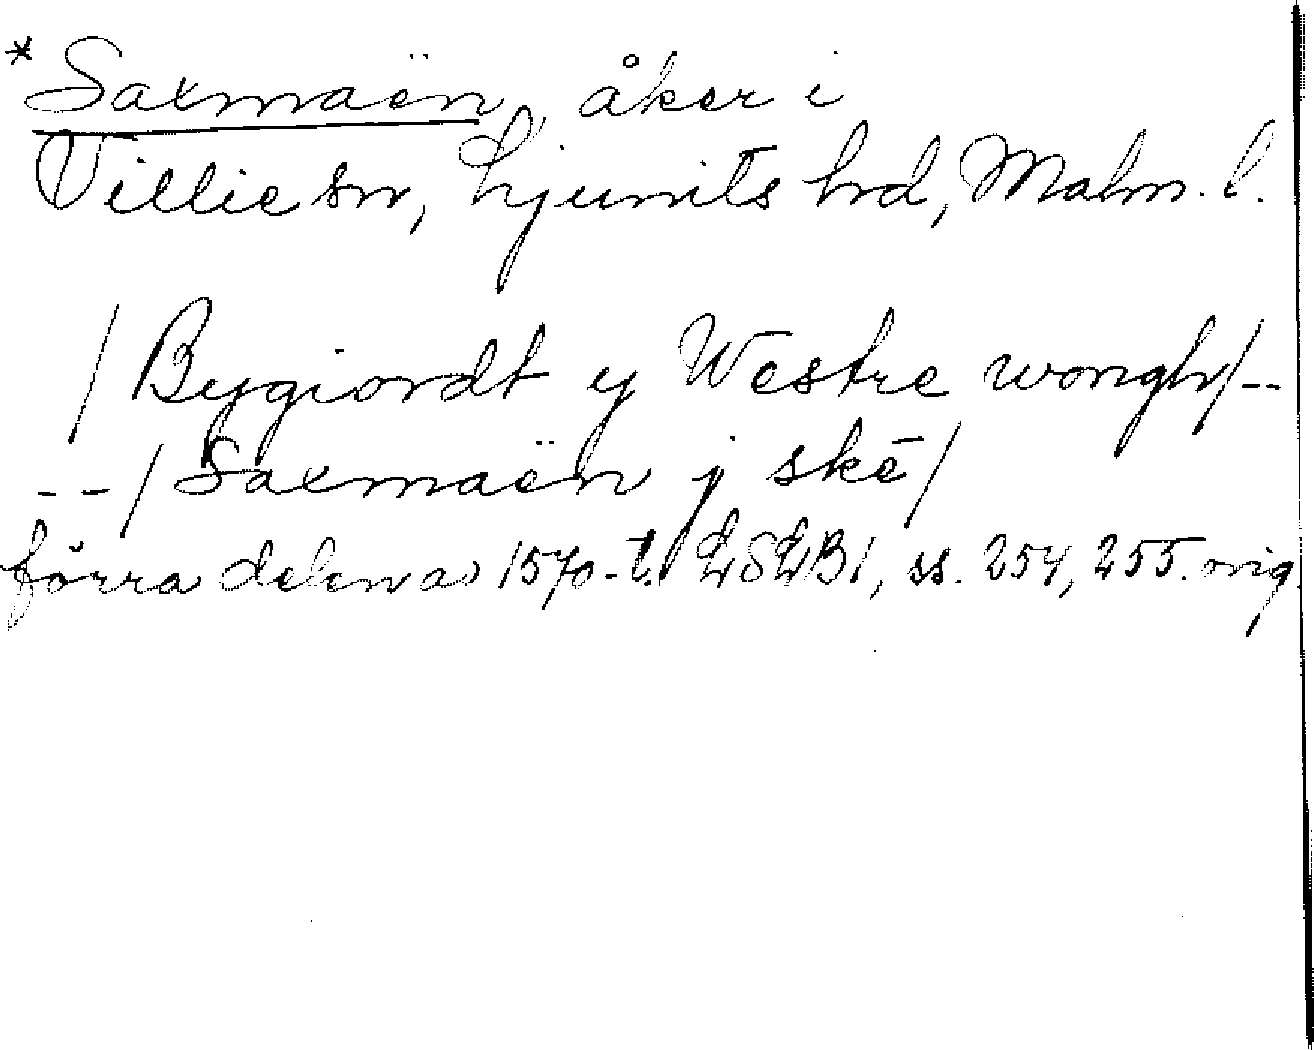 *Saxmaën, åker i
Villie sn, Ljunits hd, Malm. l.
/Bygiordt y Westre wongh/--
--/Saxmaën j skē/
förra delen av 1570-t. LSLB1, ss. 254, 255. orig.